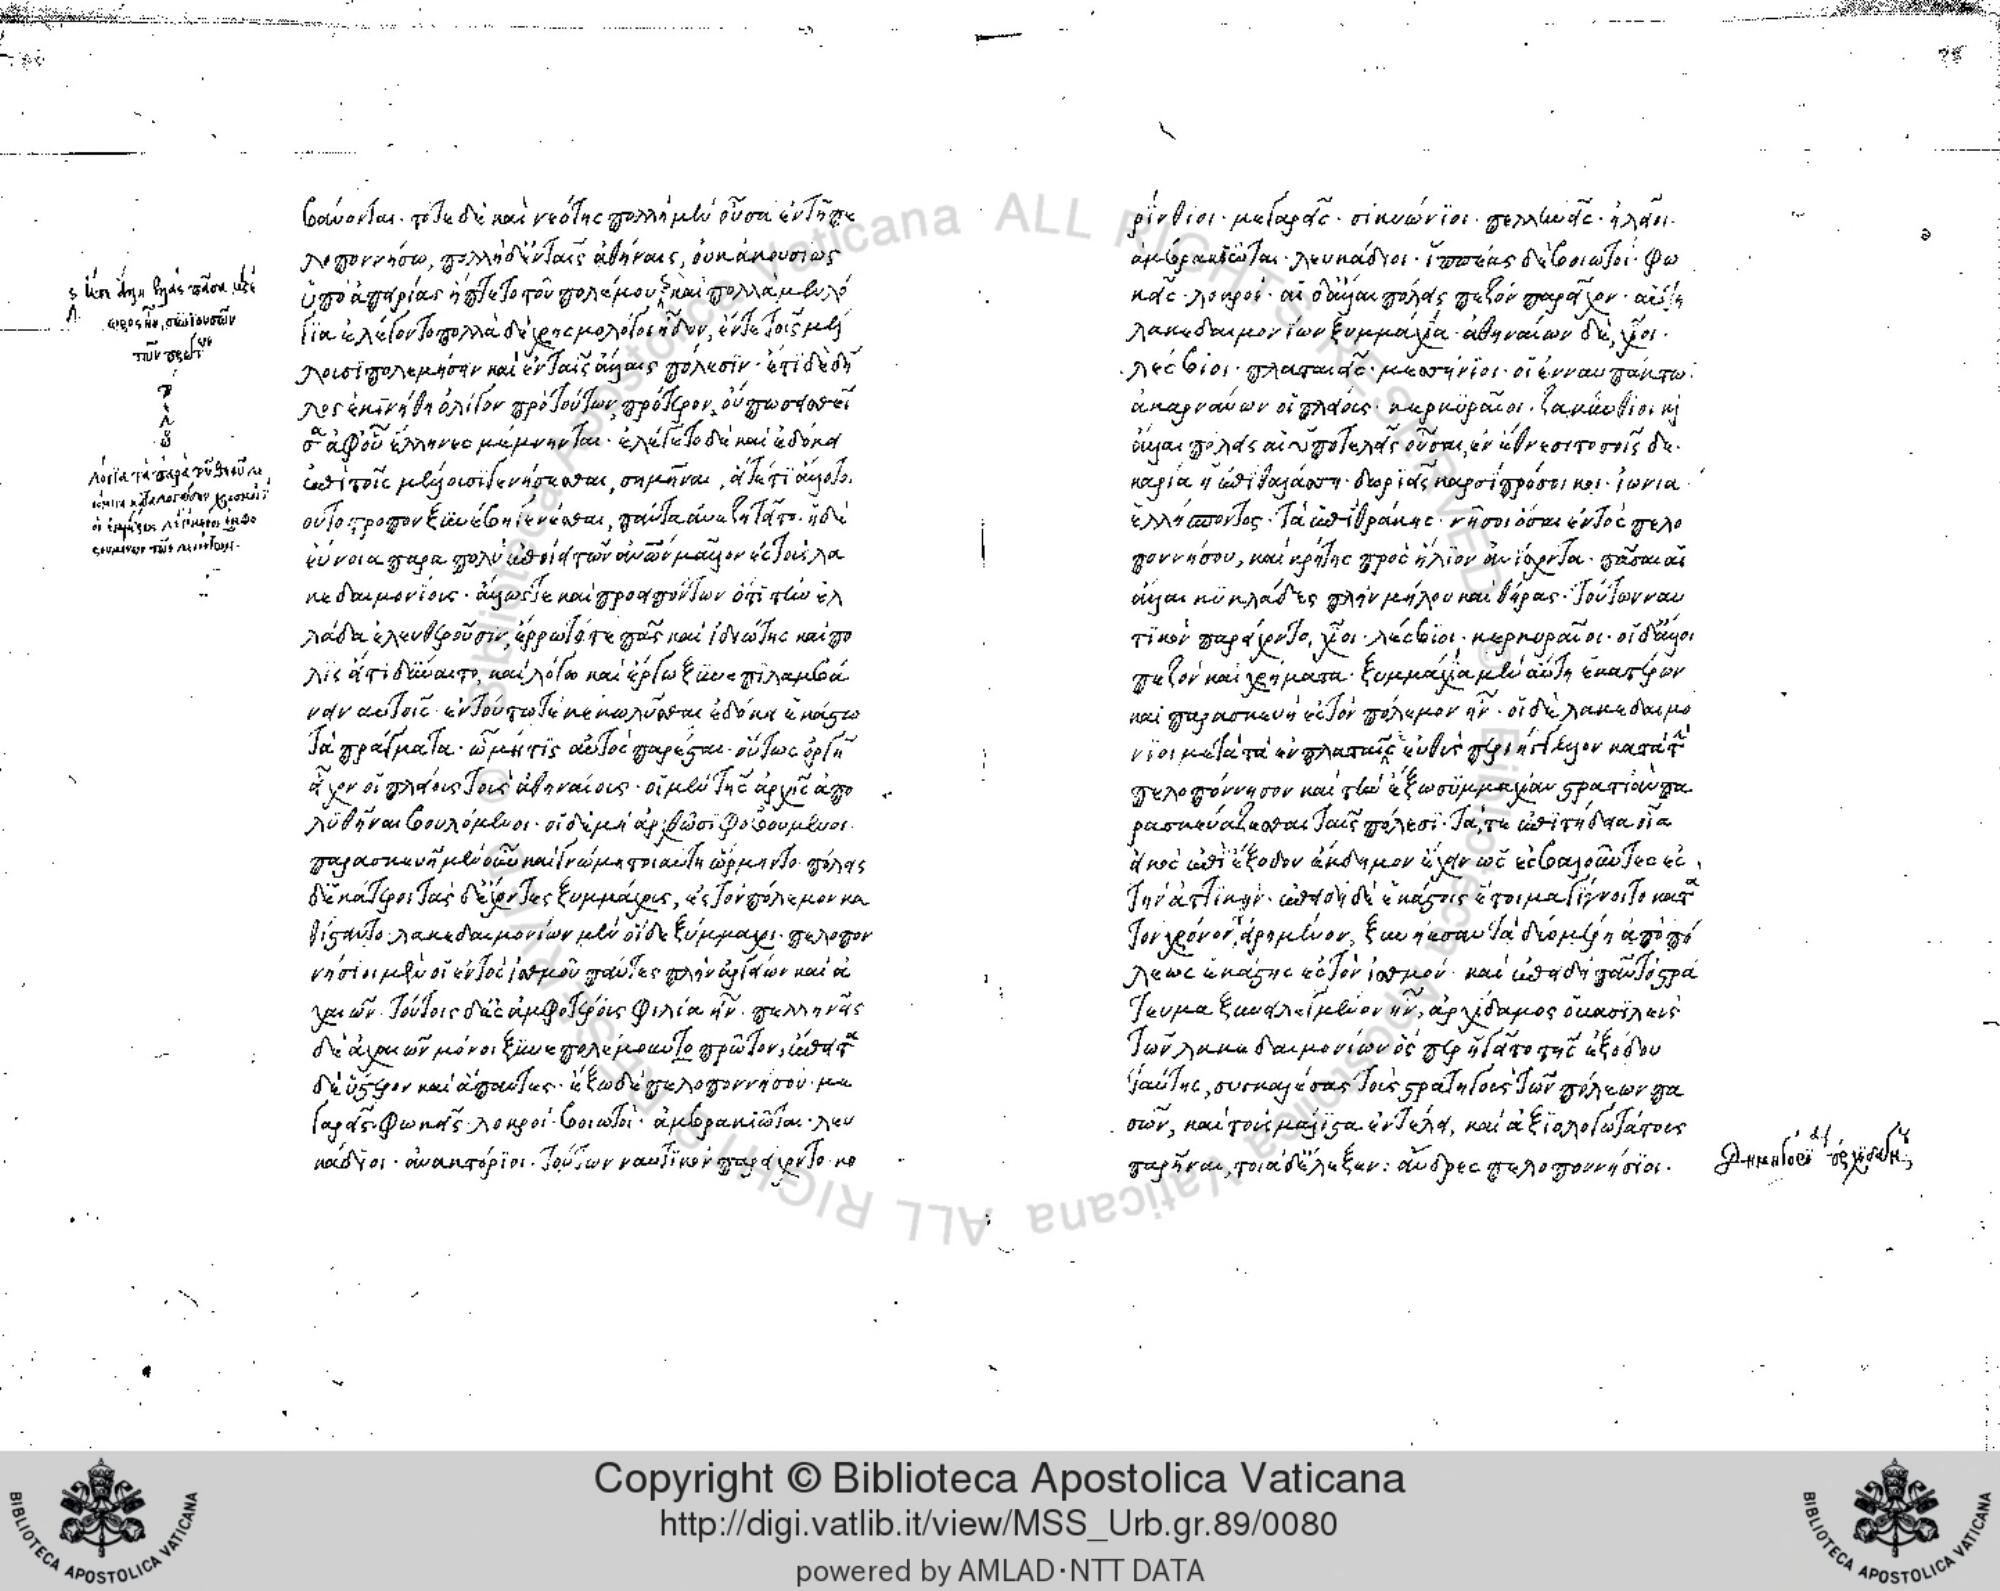 βάνονται· τότε δὲ καὶ νεότης πολλὴ μὲν οὖσα ἐν τῇ πε
λοποννήσω, πολλὴ δ' ἐν ταῖς ἀθήναις, οὐκ ἀκουσίως
ὑπὸ ἀπειρίας ἥπτετο τοῦ πολέμου· καὶ πολλὰ μὲν λό
για ἐλέγοντο πολλὰ δὲ χρησμολόγοι ἦδον, ἔν τε τοῖς μέλ
λουσι πολεμήσειν καὶ ἐν ταῖς ἄλλαις πόλεσιν· ἔτι δὲ δῆ
λος ἐκινήθη ὀλίγον πρὸ τούτων, πρότερον οὔπω σεισθεῖ
σα ἀφ' οὗ ἕλληνες μέμνηνται· ἐλέγετο δὲ καὶ ἐδόκει
ἐπὶ τοῖς μέλλουσι γενήσεσθαι, σημῆναι, εἴ τέ τι ἄλλο το
ουτότροπον ξυνέβη γενέσθαι, πάντα ἀνεζητεῖτο· ἡ δὲ
εὔνοια παρα πολὺ ἐποίει τῶν ἀνθρώπων μᾶλλον ἐς τοὺς λα
κεδαιμονίους· ἄλλως τε καὶ προειπόντων ὅτι τὴν ἑλ
λάδα ἐλευθεροῦσιν, ἔρρωτό τε πᾶς καὶ ἰδιώτης καὶ πό
λις εἴ τι δύναιτο, καὶ λόγω καὶ ἔργω ξυνεπιλαμβά
νειν αὐτοῖς· ἐν τούτω τε κεκωλῦσθαι ἐδόκει ἑκάστω
τὰ πράγματα· ὧ μή τις αὐτὸς παρέσται· οὕτως ὀργῇ
εἶχον οἱ πλείους τοὺς ἀθηναίους· οἱ μὲν τῆς ἀρχῆς ἀπο
λυθῆναι βουλόμενοι· οἱ δὲ μὴ ἀρχθῶσι φοβούμενοι·
παρασκευῇ μὲν οὖν καὶ γνώμη τοιαύτη ὥρμηντο· πόλεις
δ' ἑκάτεροι τὰς δ' ἔχοντες ξυμμάχους, ἐς τὸν πόλεμον κα
θίσταντο· λακεδαιμονίων μὲν οἵδε ξύμμαχοι· πελοπον
νήσιοι μὲν οἱ ἐντὸς ἰσθμοῦ πάντες πλὴν ἀργείων καὶ ἀ
χαιῶν· τούτοις δὲ ἐς ἀμφοτέρους φιλία ἦν· πελληνεῖς
δὲ ἀχαιῶν μόνοι ξυνεπολέμουν τὸ πρῶτον, ἔπειτα
δὲ ὕστερον καὶ ἅπαντες· ἔξω δὲ πελοποννήσου· με
γαρεῖς· φωκεῖς· λοκροί· βοιωτοί· ἀμβρακιῶται· λευ
κάδιοι· ἀνακτόριοι· τούτων ναυτικὸν παρείχοντο κο
ρίνθιοι· μεγαρεῖς· σικυώνιοι· πελληνεῖς· ἠλεῖοι·
ἀμβρακιῶται· λευκάδιοι· ἱππέας δὲ βοιωτοί· φω
κεῖς· λοκροί· αἱ δ' ἄλλαι πόλεις πεζὸν παρεῖχον· αὕτη
λακεδαιμονίων ξυμμαχία· ἀθηναίων δὲ, χῖοι·
λέσβιοι· πλαταιεῖς· μεσσήνιοι· οἱ ἐν ναυπάκτω·
ἀκαρνάνων οἱ πλείους· κερκυραῖοι· ζακύνθιοι κ
ἄλλαι πόλεις αἱ ὑποτελεῖς οὖσαι, ἐν ἔθνεσι τοσοῖς δε·
καρία ἡ ἐπὶ θαλάσση· δωριεῖς καρσὶ πρόσοικοι· ἰωνία·
ἑλλήσποντος· τὰ ἐπὶ θράκης· νῆσοι ὅσαι ἐντὸς πελο
ποννήσου, καὶ κρήτης πρὸς ἥλιον ἀνίσχοντα· πᾶσαι αἱ
ἄλλαι κυκλάδες πλὴν μήλου καὶ θήρας· τούτων ναυ
τικὸν παρείχοντο, χῖοι· λέσβιοι· κερκυραῖοι· οἱ δ' ἄλλοι
πεζὸν καὶ χρήματα· ξυμμαχία μὲν αὕτη ἑκατέρων
καὶ παρασκευὴ ἐς τὸν πόλεμον ἦν· οἱ δὲ λακεδαιμό
νιοι μετὰ τὰ ἐν πλαταιαῖς εὐθὺς περιήγγελλον κατὰ τὴν
πελοπόννησον καὶ τὴν ἔξω συμμαχίαν στρατιὰν πα
ρασκευάζεσθαι ταῖς πόλεσι· τά, τε ἐπιτήδεια οἷα
εἰκὸς ἐπὶ ἔξοδον ἔκδημον ἔχειν ὡς ἐσβαλοῦντες ἐς
τὴν ἀττικήν· ἐπειδὴ δὲ ἑκάστοις ἑτοῖμα γίγνοιτο κατὰ
τὸν χρόνον εἰρημένον, ξυνήεσαν τὰ δύο μέρη ἀπὸ πό
λεως ἑκάστης ἐς τὸν ἰσθμόν· καὶ ἐπειδὴ πᾶν τὸ στρά
τευμα ξυνειλεγμένον ἦν, ἀρχίδαμος ὁ βασιλεὺς
τῶν λακεδαιμονίων ὅς περ ἡγεῖτο τῆς ἐξόδου
ταύτης, συγκαλέσας τοὺς στρατηγοὺς τῶν πόλεων πα
σῶν, καὶ τοὺς μάλιστα ἐν τέλει, καὶ ἀξιολογωτάτους
παρῆναι, τοιάδ' ἔλεξεν: ἄνδρες πελοποννήσιοι·
Copyright © Biblioteca Apostolica Vaticana
http://digi.vatlib.it/view/MSS_Urb.gr.89/0080
powered by AMLAD·NTT DATA